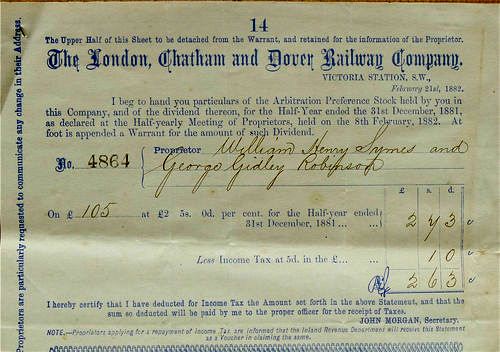 14
The Upper Half of this Sheet to be detached from the Warrant, and retained for the information of the Proprietor.
The London, Chatham and Dover Railway Company.
VICTORIA STATION, S.W.,
February 21st, 1882.
I beg to hand you particulars of the Arbitration Preference Stock held by you in
this Company, and of the dividend thereon, for the Half-Year ended the 31st December, 1881,
as declared at the Half-yearly Meeting of Proprietors, held on the 8th February, 1882. At
foot is appended a Warrant for the amount of such Dividend.
Proprietor William Henry Symes and
No. 4864 George Gidley Robinson
£ s. d.
On £ 105 at £2 5s. 0d. per cent. for the Half-year ended
31st December, 1881 ... ... 2 7 3
Less Income Tax at 5d. in the £... ... 1 0
2 6 3
I hereby certify that I have deducted for Income Tax the Amount set forth in the above Statement, and that the
sum so deducted will be paid by me to the proper officer for the receipt of Taxes.
JOHN MORGAN, Secretary.
NOTE.—Proprietors applying for a repayment of Income Tax are informed that the Inland Revenue Department will receive this Statement
as a Voucher in claiming the same.
Proprietors are particularly requested to communicate any change in their Address.